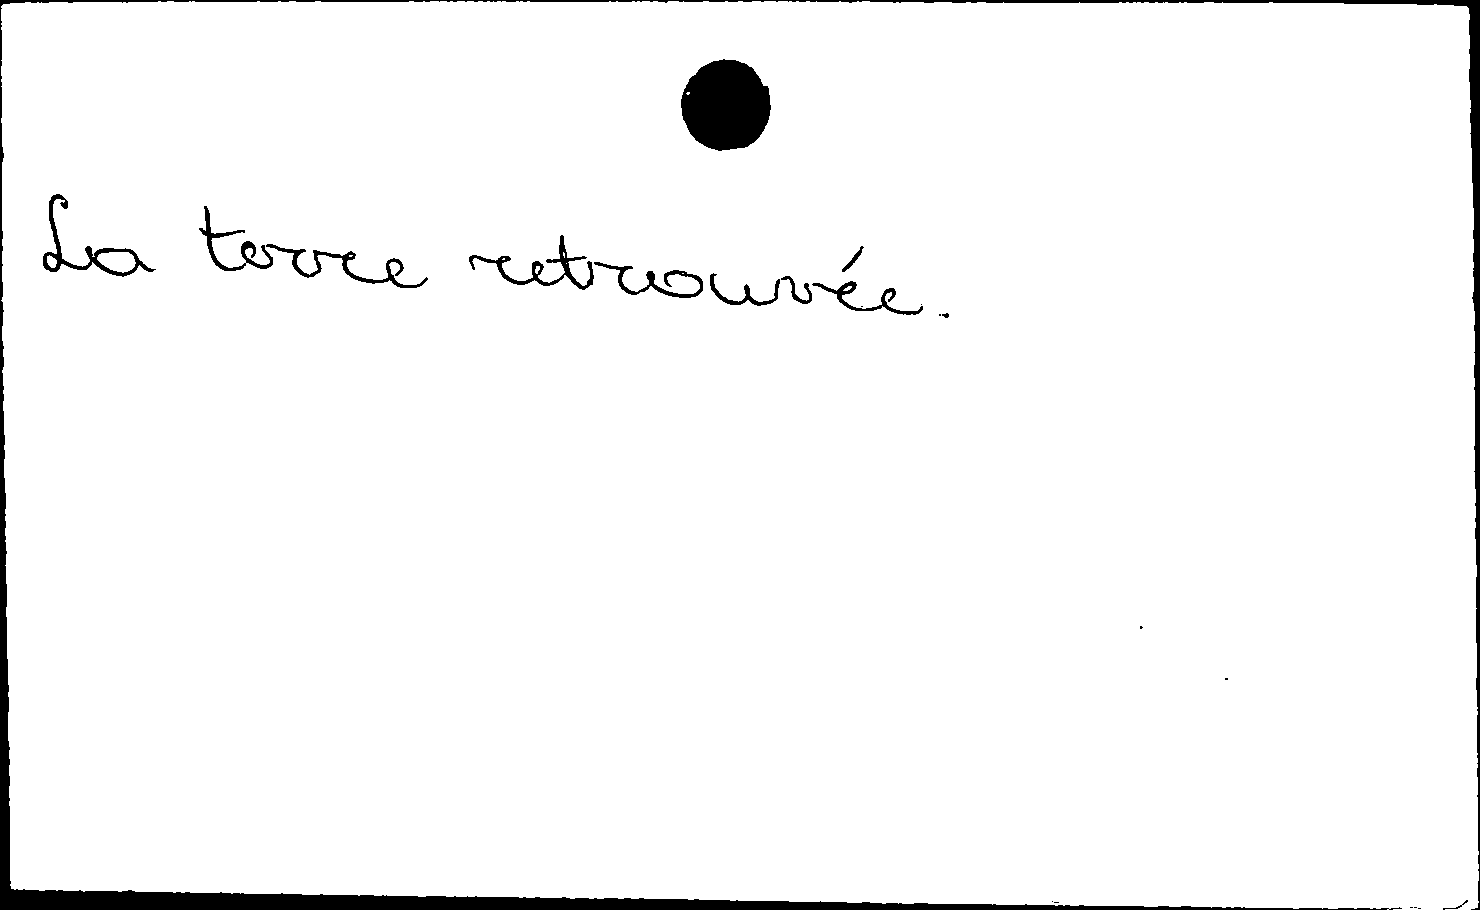 La terre retrouvée.